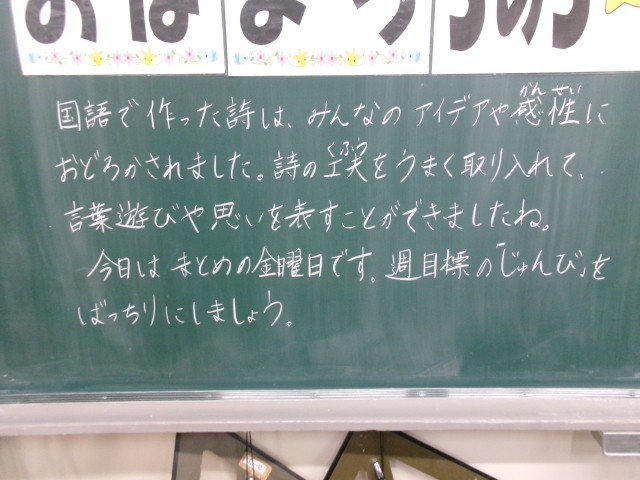 おはよう
かん せい
国語で作った詩は、みんなのアイデアや感性に
くふう
おどろかされました。詩の工夫をうまく取り入れて、
言葉遊びや思いを表すことができましたね。
今日はまとめの金曜日です。週目標の「じゅんび」を
ばっちりにしましょう。